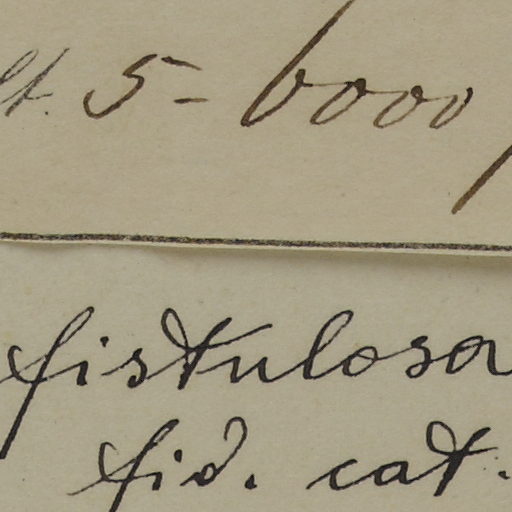 lt. 5-6000
fistulosa
fid. cat.